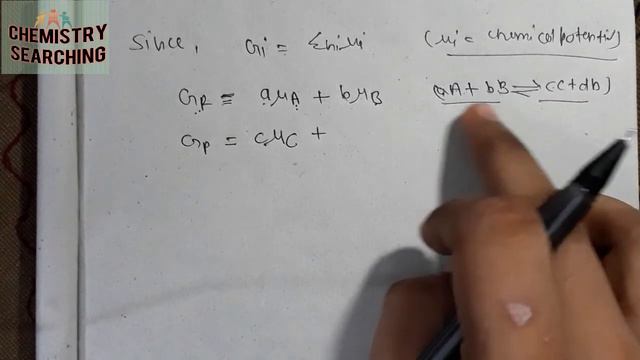 CHEMISTRY
SEARCHING
Since, Gi = Σniμi (μi = chemical potential)
GR = aμA + bμB (aA + bB ⇌ cC + db)
Gp = cμC +